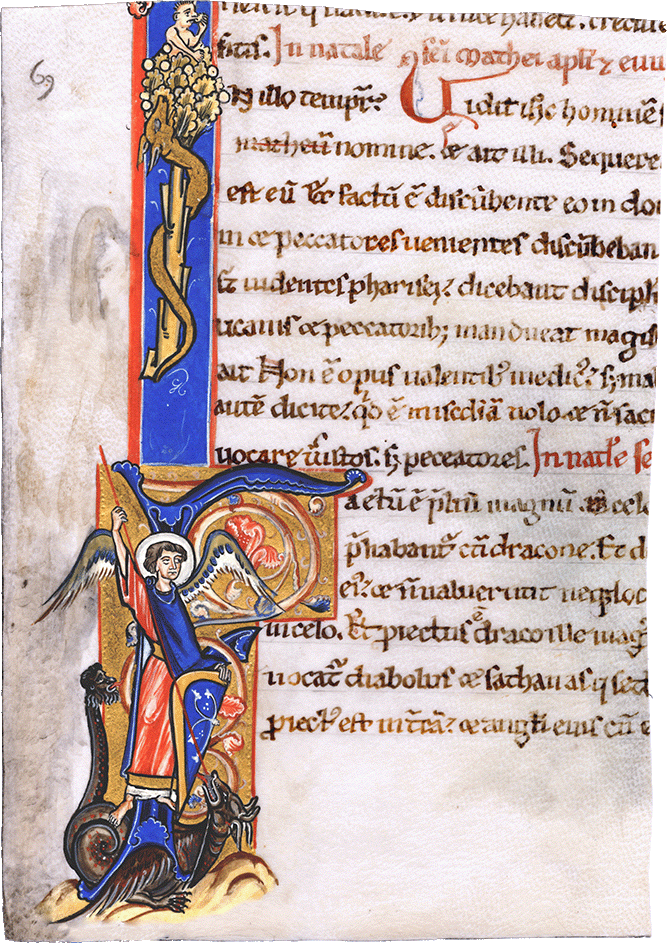 69
sitis. In natale sc̄i Mathei apl̄i ⁊ euu
N illo tempr̄. Vidit ih̄c hominē
matheū nomine. & ait illi. Sequere
est eū. Et factū ē discūbente eo in do
in & peccatores uenientes discūbeban
st uidentes pharisei. dicebant discipl
ucanis & peccatorib; manducat magis
ait Non ē opus ualentib' medic'. s; mal
autē dicite. qd̄ ē mis̄ediā uolo & n̄ sac
uocare iustos. s; peccatores. In natl̄e sc̄
actū ē p̄liū magnū in celo
p̄liabant' cū dracone. Et d
ei'. & n̄ ualuerunt neq; loc
in celo. Et piectus ē draco ille mag
uocat' diabolus & sathanas q sed
piect' est in t̄rā. & angl̄i eius cū e